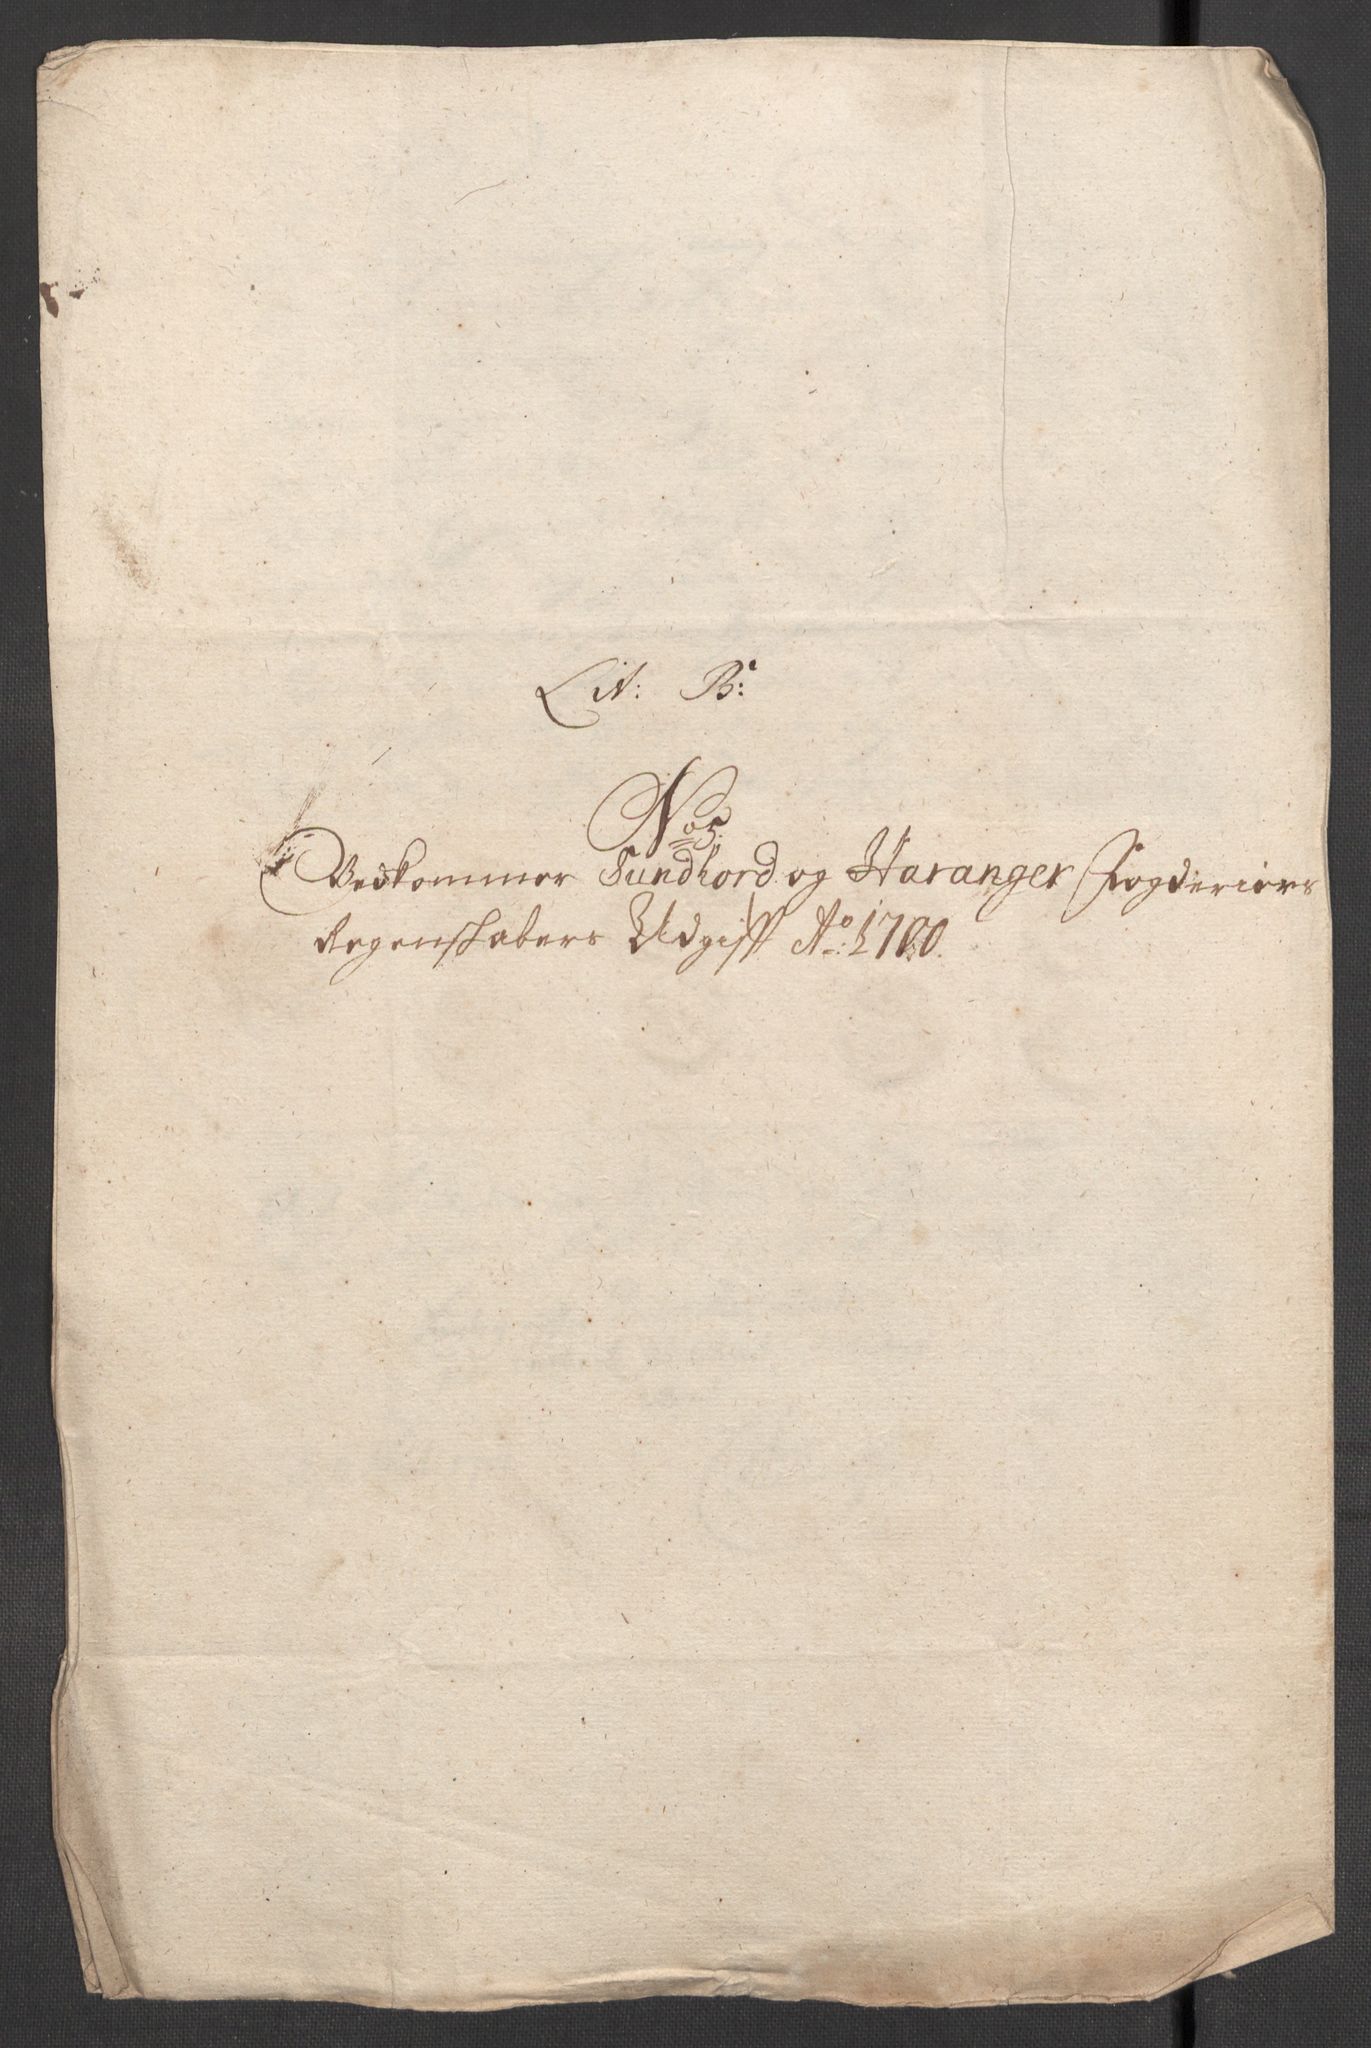 Lit: B:
No 5.
Vedkommer Sundhord og Haranger Fogderiers
Regenskabers Udgift Ao: 1700.